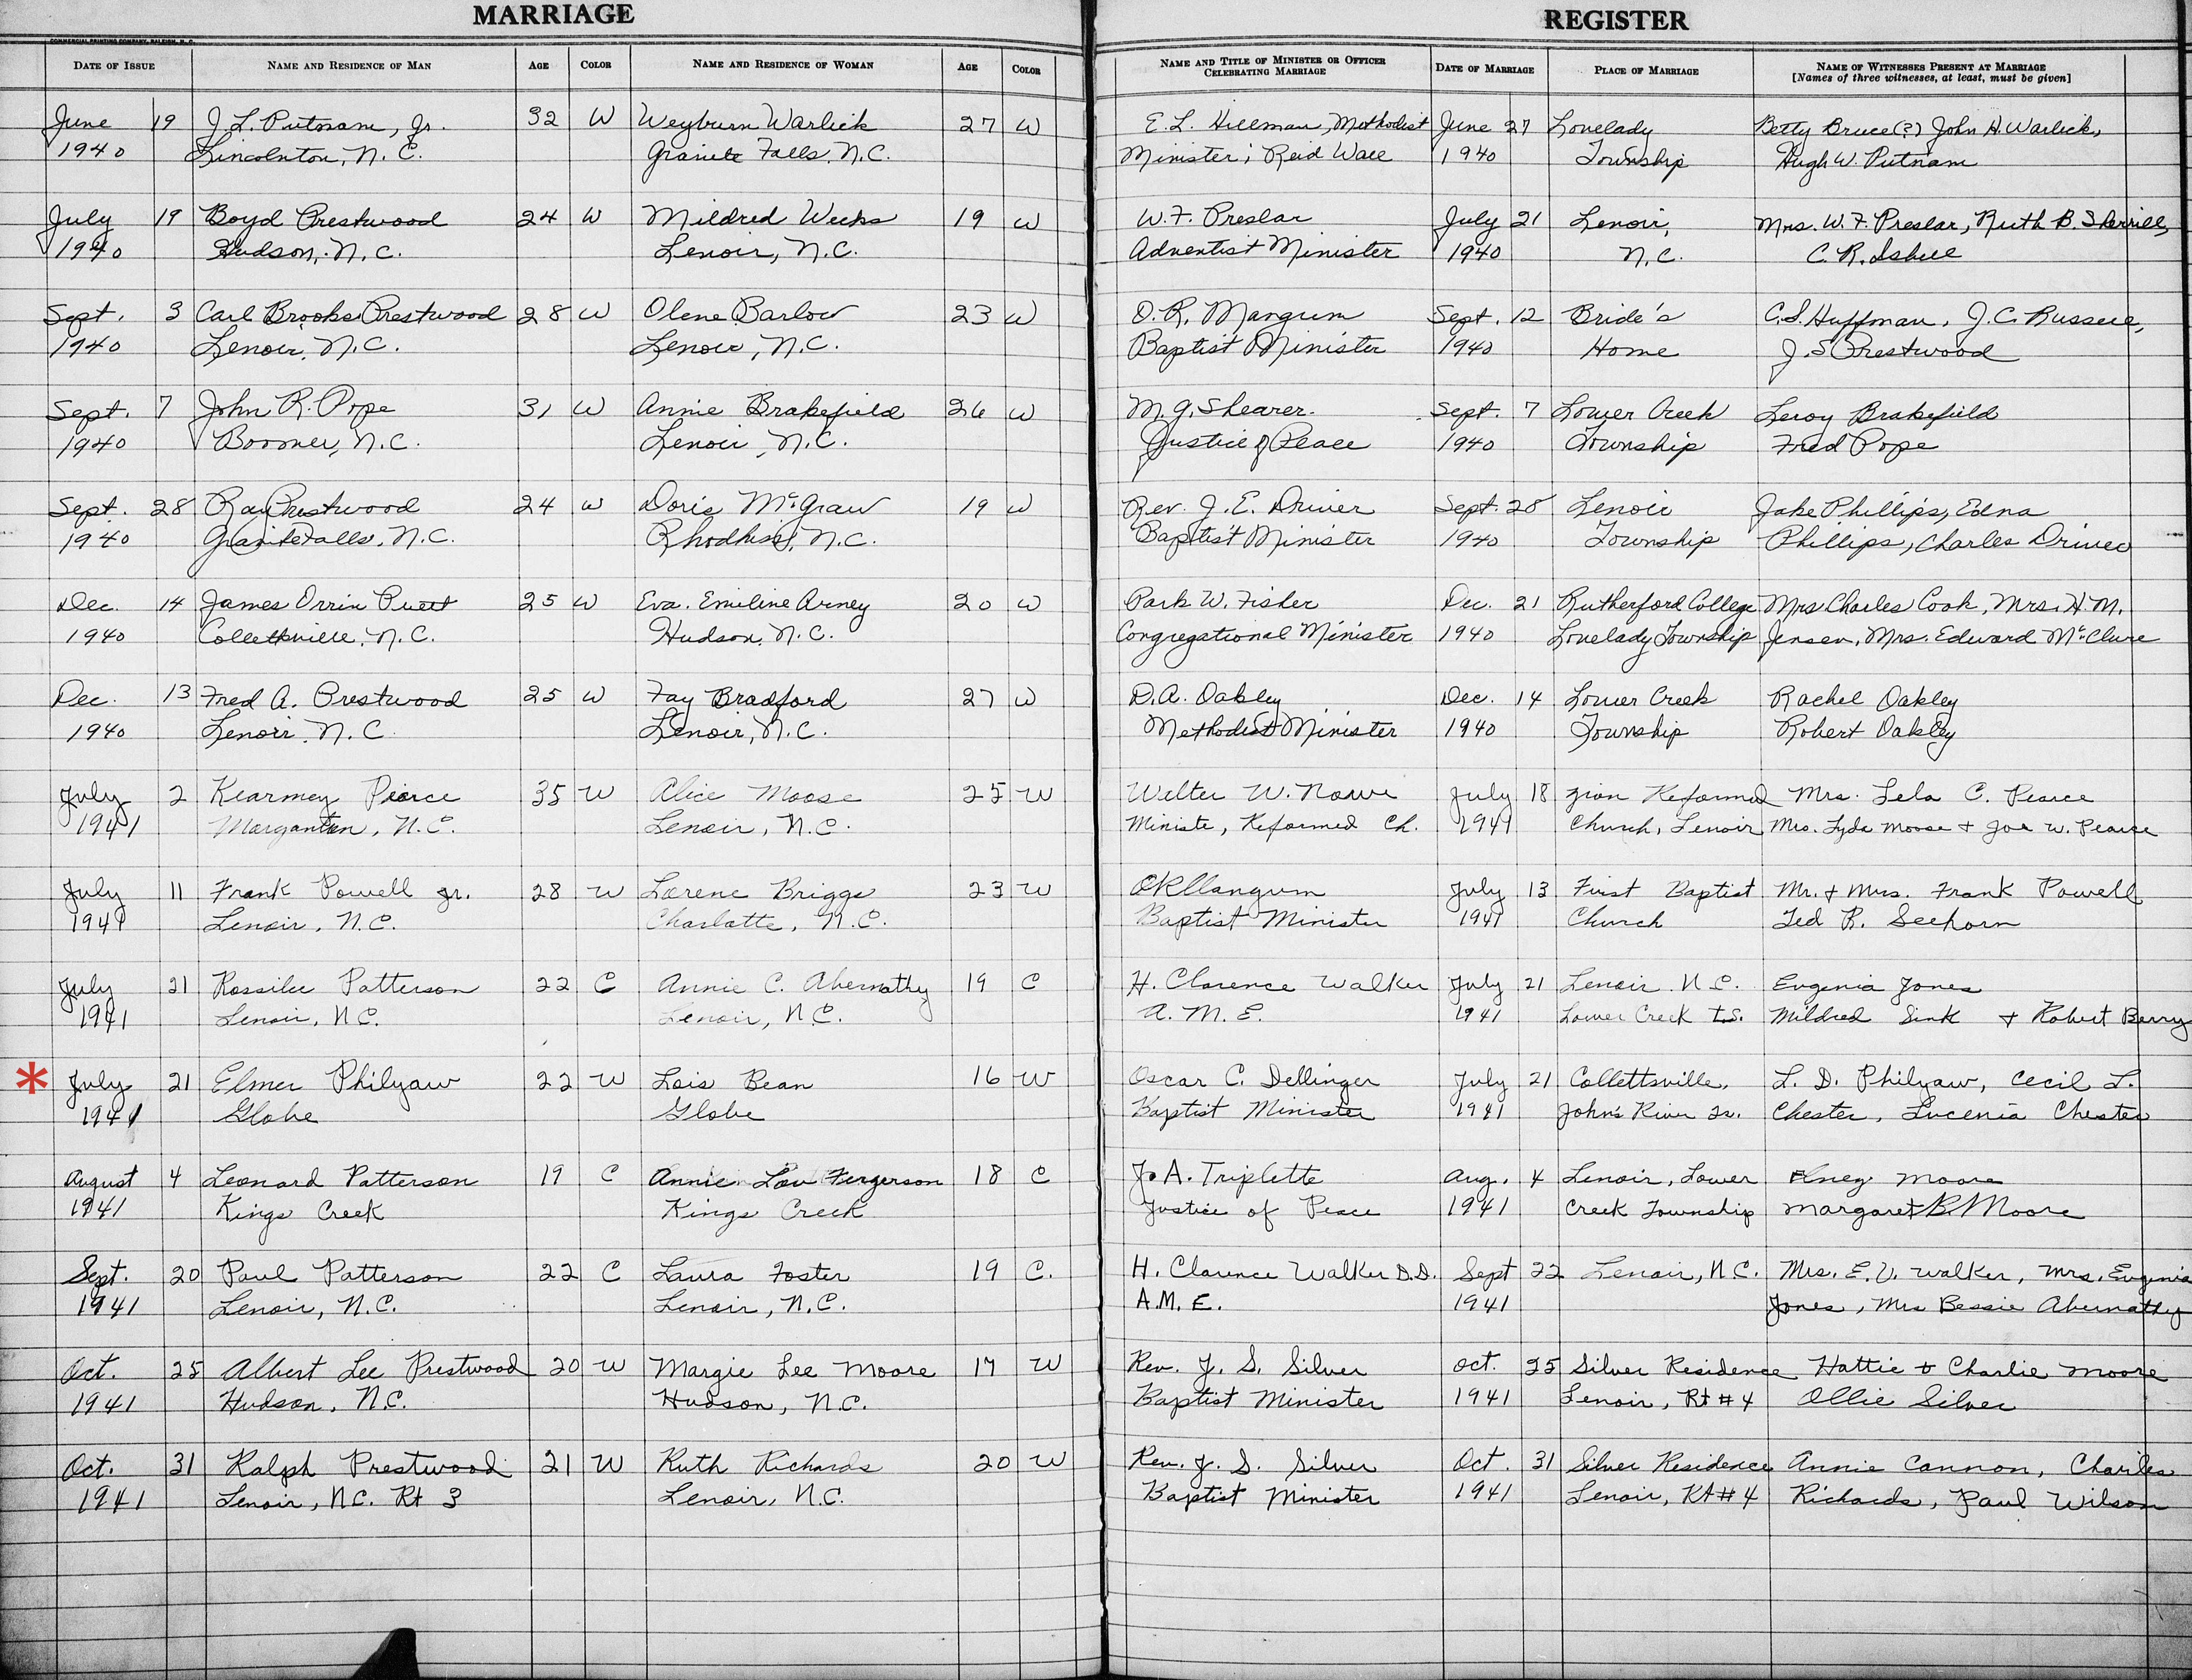 MARRIAGE
REGISTER
COMMERCIAL PRINTING COMPANY, RALEIGH, N. C.
DATE OF ISSUE NAME AND RESIDENCE OF MAN AGE COLOR NAME AND RESIDENCE OF WOMAN AGE COLOR NAME AND TITLE OF MINISTER OR OFFICER CELEBRATING MARRIAGE DATE OF MARRIAGE PLACE OF MARRIAGE NAME OF WITNESSES PRESENT AT MARRIAGE
[Names of three witnesses, at least, must be given]
June 19 J. L. Putnam, Jr. 32 W Weyburn Warlick 27 W E. L. Hillman, Methodist June 27 Lovelady Betty Bruce(?) John H. Warlick,
1940 Lincolnton, N. C. Granite Falls, N.C. Minister; Reid Wall 1940 Township Hugh W. Putnam
July 19 Boyd Prestwood 24 W Mildred Weeks 19 W W. F. Preslar July 21 Lenoir, Mrs. W. F. Preslar, Ruth B. Sherrill,
1940 Hudson, N.C. Lenoir, N.C. Adventist Minister 1940 N.C. C. R. Isbell
Sept. 3 Carl Brooks Prestwood 28 W Olene Barlow 23 W O. R. Mangum Sept. 12 Bride's C. S. Huffman, J. C. Russell,
1940 Lenoir, N.C. Lenoir, N.C. Baptist Minister 1940 Home J. S Prestwood
Sept. 7 John R. Pope 31 W Annie Brakefield 26 W M. G. Shearer. Sept. 7 Lower Creek Leroy Brakefield
1940 Boomer, N.C. Lenoir, N.C. Justice of Peace 1940 Township Fred Pope
Sept. 28 Ray Prestwood 24 W Doris McGraw 19 W Rev. J. E. Driver Sept. 28 Lenoir Jake Phillips, Edna
1940 Granite Falls, N.C. Rhodhiss, N.C. Baptist Minister 1940 Township Phillips, Charles Driver
Dec. 14 James Orrin Puett 25 W Eva. Emiline Arney 20 W Park W. Fisher Dec. 21 Rutherford College Mrs Charles Cook, Mrs. H. M.
1940 Collettsville, N.C. Hudson, N.C. Congregational Minister 1940 Lovelady Township Jensen, Mrs. Edward McClure
Dec. 13 Fred A. Prestwood 25 W Fay Bradford 27 W D. A. Oakley Dec. 14 Lower Creek Rachel Oakley
1940 Lenoir, N.C Lenoir, N.C. Methodist Minister 1940 Township Robert Oakley
July 2 Pearce 35 W Alice Moose 25 W Walter W. Rowe July 18 Zion Reformed Mrs. Lela C. Pearce
1941 Morganton, N.C. Lenoir, N.C. Ministe, Reformed Ch. 1941 Church, Lenoir Mrs. Lyda Moose + Joe W. Pearce
July 11 Frank Powell Jr. 28 W Lorene Briggs 23 W O R Mangum July 13 First Baptist Mr. + Mrs. Frank Powell
1941 Lenoir, N.C. Charlotte, N.C. Baptist Minister 1941 Church Ted R. Seehorn
July 21 Rossilee Patterson 22 C Annie C. Abernathy 19 C H. Clarence Walker July 21 Lenoir N.C. Eugenia Jones
1941 Lenoir, N C. Lenoir, N C. A. M. E. 1941 Lower Creek T.S. Mildred Sink + Robert Berry
* July 21 Elmer Philyaw 22 W Lois Bean 16 W Oscar C. Dellinger July 21 Collettsville, L. D. Philyaw, Cecil L.
1941 Globe Globe Baptist Minister 1941 John's River Ts. Chester, Lucenia Chester
August 4 Leonard Patterson 19 C Annie Lou Fergerson 18 C J. A. Triplette Aug. 4 Lenoir, Lower Moore
1941 Kings Creek Kings Creek Justice of Peace 1941 Creek Township Margaret B. Moore
Sept. 20 Paul Patterson 22 C Laura Foster 19 C. H. Clarence Walker D.D. Sept 22 Lenoir, N.C. Mrs. E. V. Walker, Mrs. Eugenia
1941 Lenoir, N.C. Lenoir, N.C. A.M.E. 1941 Jones, Mrs Bessie Abernathy
Oct. 25 Albert Lee Prestwood 20 W Margie Lee Moore 17 W Rev. J. S. Silver Oct. 25 Silver Residence Hattie + Charlie Moore
1941 Hudson, N.C. Hudson, N.C. Baptist Minister 1941 Lenoir, Rt #4 Ollie Silver
Oct. 31 Ralph Prestwood 21 W Ruth Richards 20 W Rev. J. S. Silver Oct. 31 Silver Residence Annie Cannon, Charles
1941 Lenoir, N.C. Rt 3 Lenoir, N.C. Baptist Minister 1941 Lenoir, Rt #4 Richards, Paul Wilson